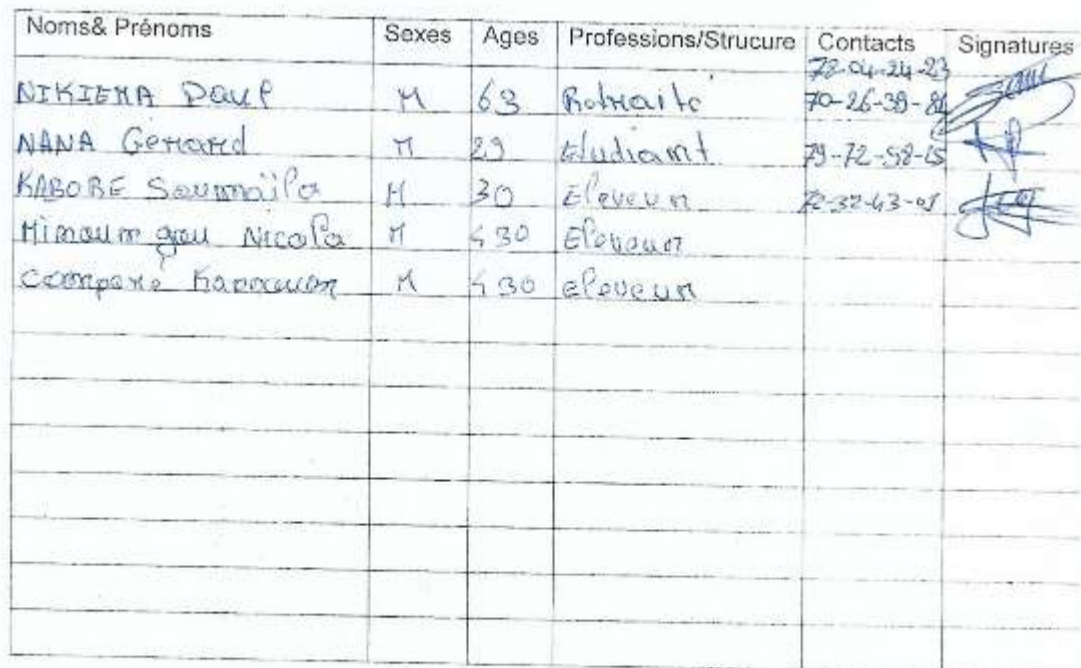 Noms& Prénoms Sexes Ages Professions/Strucure Contacts Signatures
78-04-24-23
NIKIEMA Paul M 63 Retraité 70-26-39-86
NANA Gérard M 29 Etudiant 79-72-58-15
KABORE Soumaïla M 30 Eleveur 72-32-43-01
Nicola M <30 Eleveur
Compaoré M <30 eleveur